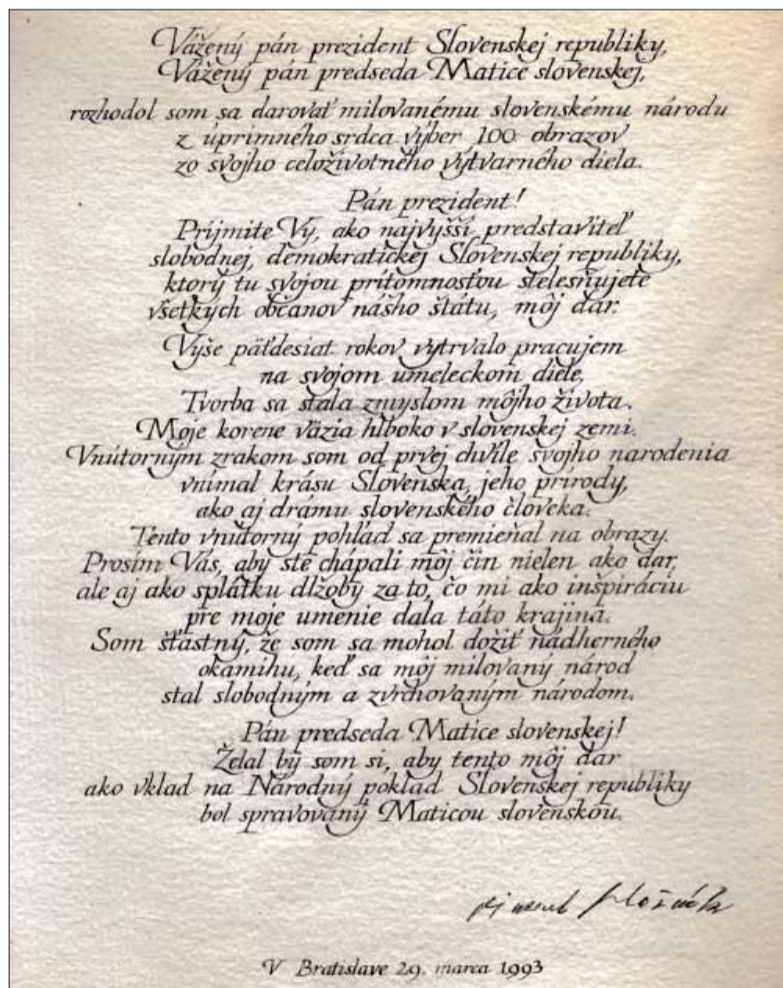 Vážený pán prezident Slovenskej republiky,
Vážený pán predseda Matice slovenskej,
rozhodol som sa darovať milovanému slovenskému národu
z úprimného srdca výber 100 obrazov
zo svojho celoživotného výtvarného diela.
Pán prezident!
Príjmite Vy, ako najvyšší predstaviteľ
slobodnej, demokratickej Slovenskej republiky,
ktorý tu svojou prítomnosťou stelesňujete
všetkých občanov nášho štátu, môj dar.
Vyše päťdesiat rokov vytrvalo pracujem
na svojom umeleckom diele.
Tvorba sa stala zmyslom môjho života.
Moje korene väzia hlboko v slovenskej zemi.
Vnútorným zrakom som od prvej chvíle svojho narodenia
vnímal krásu Slovenska, jeho prírody,
ako aj drámu slovenského človeka.
Tento vnútorný pohľad sa premieňal na obrazy.
Prosím Vás, aby ste chápali môj čin nielen ako dar,
ale aj ako splátku dlžoby za to, čo mi ako inšpiráciu
pre moje umenie dala táto krajina.
Som šťastný, že som sa mohol dožiť nádherného
okamihu, keď sa môj milovaný národ
stal slobodným a zvrchovaným národom.
Pán predseda Matice slovenskej!
Želal by som si, aby tento môj dar
ako vklad na Národný poklad Slovenskej republiky
bol spravovaný Maticou slovenskou.
V Bratislave 29. marca 1993